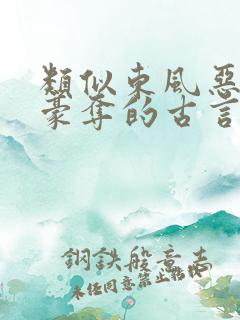 類似東風惡
豪奪的古言
鋼鉄般意志
未经同意禁止搭讪